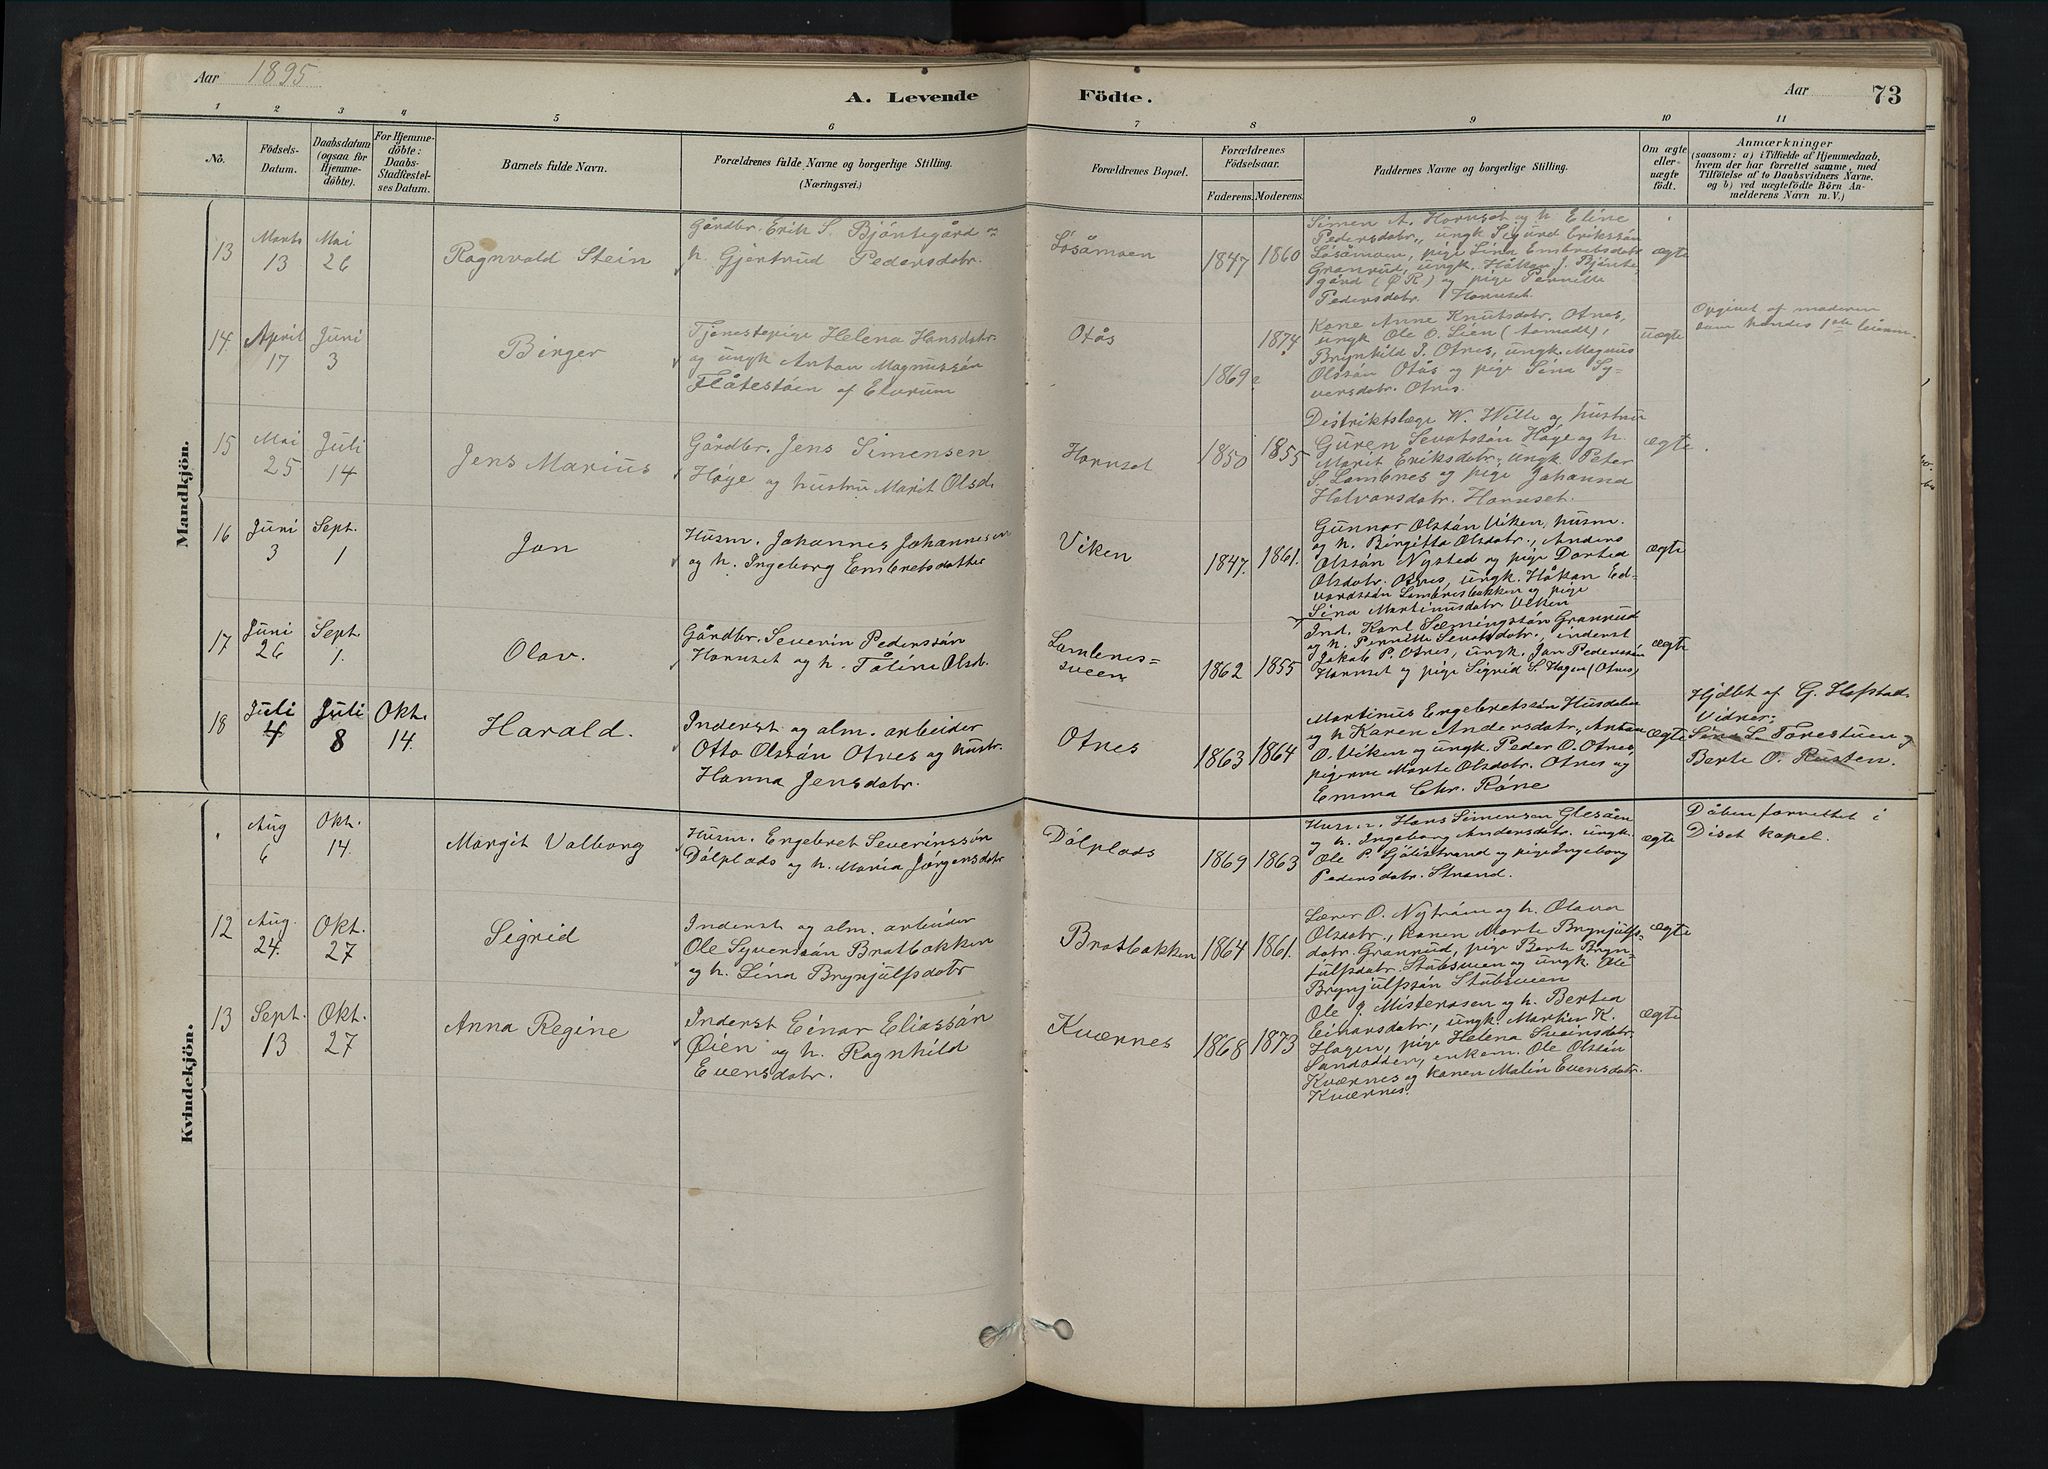 Aar 1895
A. Levende Födte.
Aar 73
1 2 3 4 5 6 7 8 9 10 11
No.
Födsels-
Datum.
Daabsdatum
(ogsaa for
Hjemme-
döbte).
For Hjemme-
döbte:
Daabs-
Stadfæstel-
ses Datum.
Barnets fulde Navn.
Forældrenes fulde Navne og borgerlige Stilling.
(Næringsvei.)
Forældrenes Bopæl.
Forældrenes
Födselsaar.
Faderens. Moderens.
Faddernes Navne og borgerlige Stilling.
Om ægte
eller
uægte
födt.
Anmærkninger
(saasom: a) i Tilfælde af Hjemmedaab,
hvem der har forrettet samme, med
Tilföielse af to Daabsvidners Navne,
og b) ved uægtefödte Börn An-
melderens Navn m. V.)
Mandkjön.
13
Marts
13
Mai
26
Ragnvald Stein
Gårdbr. Erik S. Bjöntegård og
h. Gjertrud Pedersdatr.
Lösåmoen
1847 1860
Simen A. Hornset og h. Eline
Pedersdatr., ungk Sigurd Erikssön
Lösåmoen, pige Lina Embretsdatr
Granrud, ungk. Håkon J. Bjönte
gård (Ø R) og pige Pernille
Pedersdatr. Hornset.
ægte
14.
April
17
Juni
3
Birger
Tjenestepige Helena Hansdatr
og ungk Anton Magnussön
Flåtestöen af Elvrum
Otås
1869 1874
Kone Anne Knutsdatr. Otnes,
ungk Ole O. Lien (Aamodt),
Brynhild J. Otnes, ungk. Magnus
Olssön Otås og pige Sina Sy-
versdatr. Otnes.
uægte
Opgivet af moderen
som hendes 1ste leierm.
15
Mai
25
Juli
14
Jens Marius
Gårdbr. Jens Simensen
Höye og hustru Marit Olsd.
Hornset
1850 1855
Distriktslæge W. Wille og hustru
Guren Sevatssön Höye og h.
Marit Eriksdatr., ungk. Peter
S. Lombnes og pige Johanna
Halvorsdatr. Hornset.
ægte
16
Juni
3
Sept.
1
Jon
Husm. Johannes Johannesen
og h. Ingeborg Embretsdatter
Viken
1847. 1861.
Gunnar Olssön Viken, husm.
og h. Birgitta Olsdatr., Anders
Olssön Nysted og pige Dortea
Olsdatr. Otnes, ungk. Håkan Ed-
vardssön Lombnesbakken og pige
Sina Martinusdatr. Viken
ægte
17
Juni
26
Sept.
1.
Olav.
Gårdbr. Severin Pederssön
Hornset og h. Tåline Olsd.
Lombnes=
sveen
1862 1855
Ind. Karl Sæmingssön Granrud
og h. Pernille Sevatsdatr., inderst
Jakob P. Otnes, ungk. Jon Pederssön
Hornset og pige Sigrid S. Hagen (Otnes)
ægte
18
Juli
4
Juli
8
Okt.
14.
Harald.
Inderst og alm. arbeider
Otto Olssön Otnes og hustr.
Hanna Jensdatr.
Otnes
1863 1864
Martinus Engebretssön Husdalen
og h Karen Andersdatr., Anton
O. Viken og ungk. Peder O. Otnes,
pigerne Marte Olsdatr. Otnes og
Emma Chr. Röne
ægte
Hjdbt af G. Hofstad.
Vidner:
Sina S. Torestuen og
Berte O. Rusten.
Kvindekjön.
Aug
6
Okt.
14.
Margit Valborg
Husm. Engebret Severinssön
Dölplads og h. Maria Jörgensdatr
Dölplads
1869 1863
Husm. Hans Simensen Glesåen
og h. Ingeborg Andersdatr. ungk.
Ole P. Sjölistrand og pige Ingeborg
Pedersdatr. Strand.
ægte
Dåben forrettet i
Diset kapel.
12
Aug.
24.
Okt.
27
Sigrid
Inderst og alm. arbeider
Ole Syverssön Bratbakken
og h. Lina Brynjulfsdatr
Bratbakken
1864 1861.
Lærer O. Nyström og h. Olava
Olsdatr., konen Marte Brynjulfs-
datr. Granrud, pige Berte Bryn
julfsdatr. Stubsveen og ungk. Ole
Brynjulfssön Stubsveen
ægte
13
Sept.
13
Okt.
27
Anna Regine
Inderst Einar Eliassön
Øien og h. Ragnhild
Evensdatr.
Kværnes
1868 1873
Ole J. Misteraasen og h. Bertea
Einarsdatr., ungk. Martin K.
Hagen, pige Helena Svainsdatr.
Sandodden, enkem. Ole Olssön
Kværnes og konen Malin Evensdatr.
Kværnes.
ægte